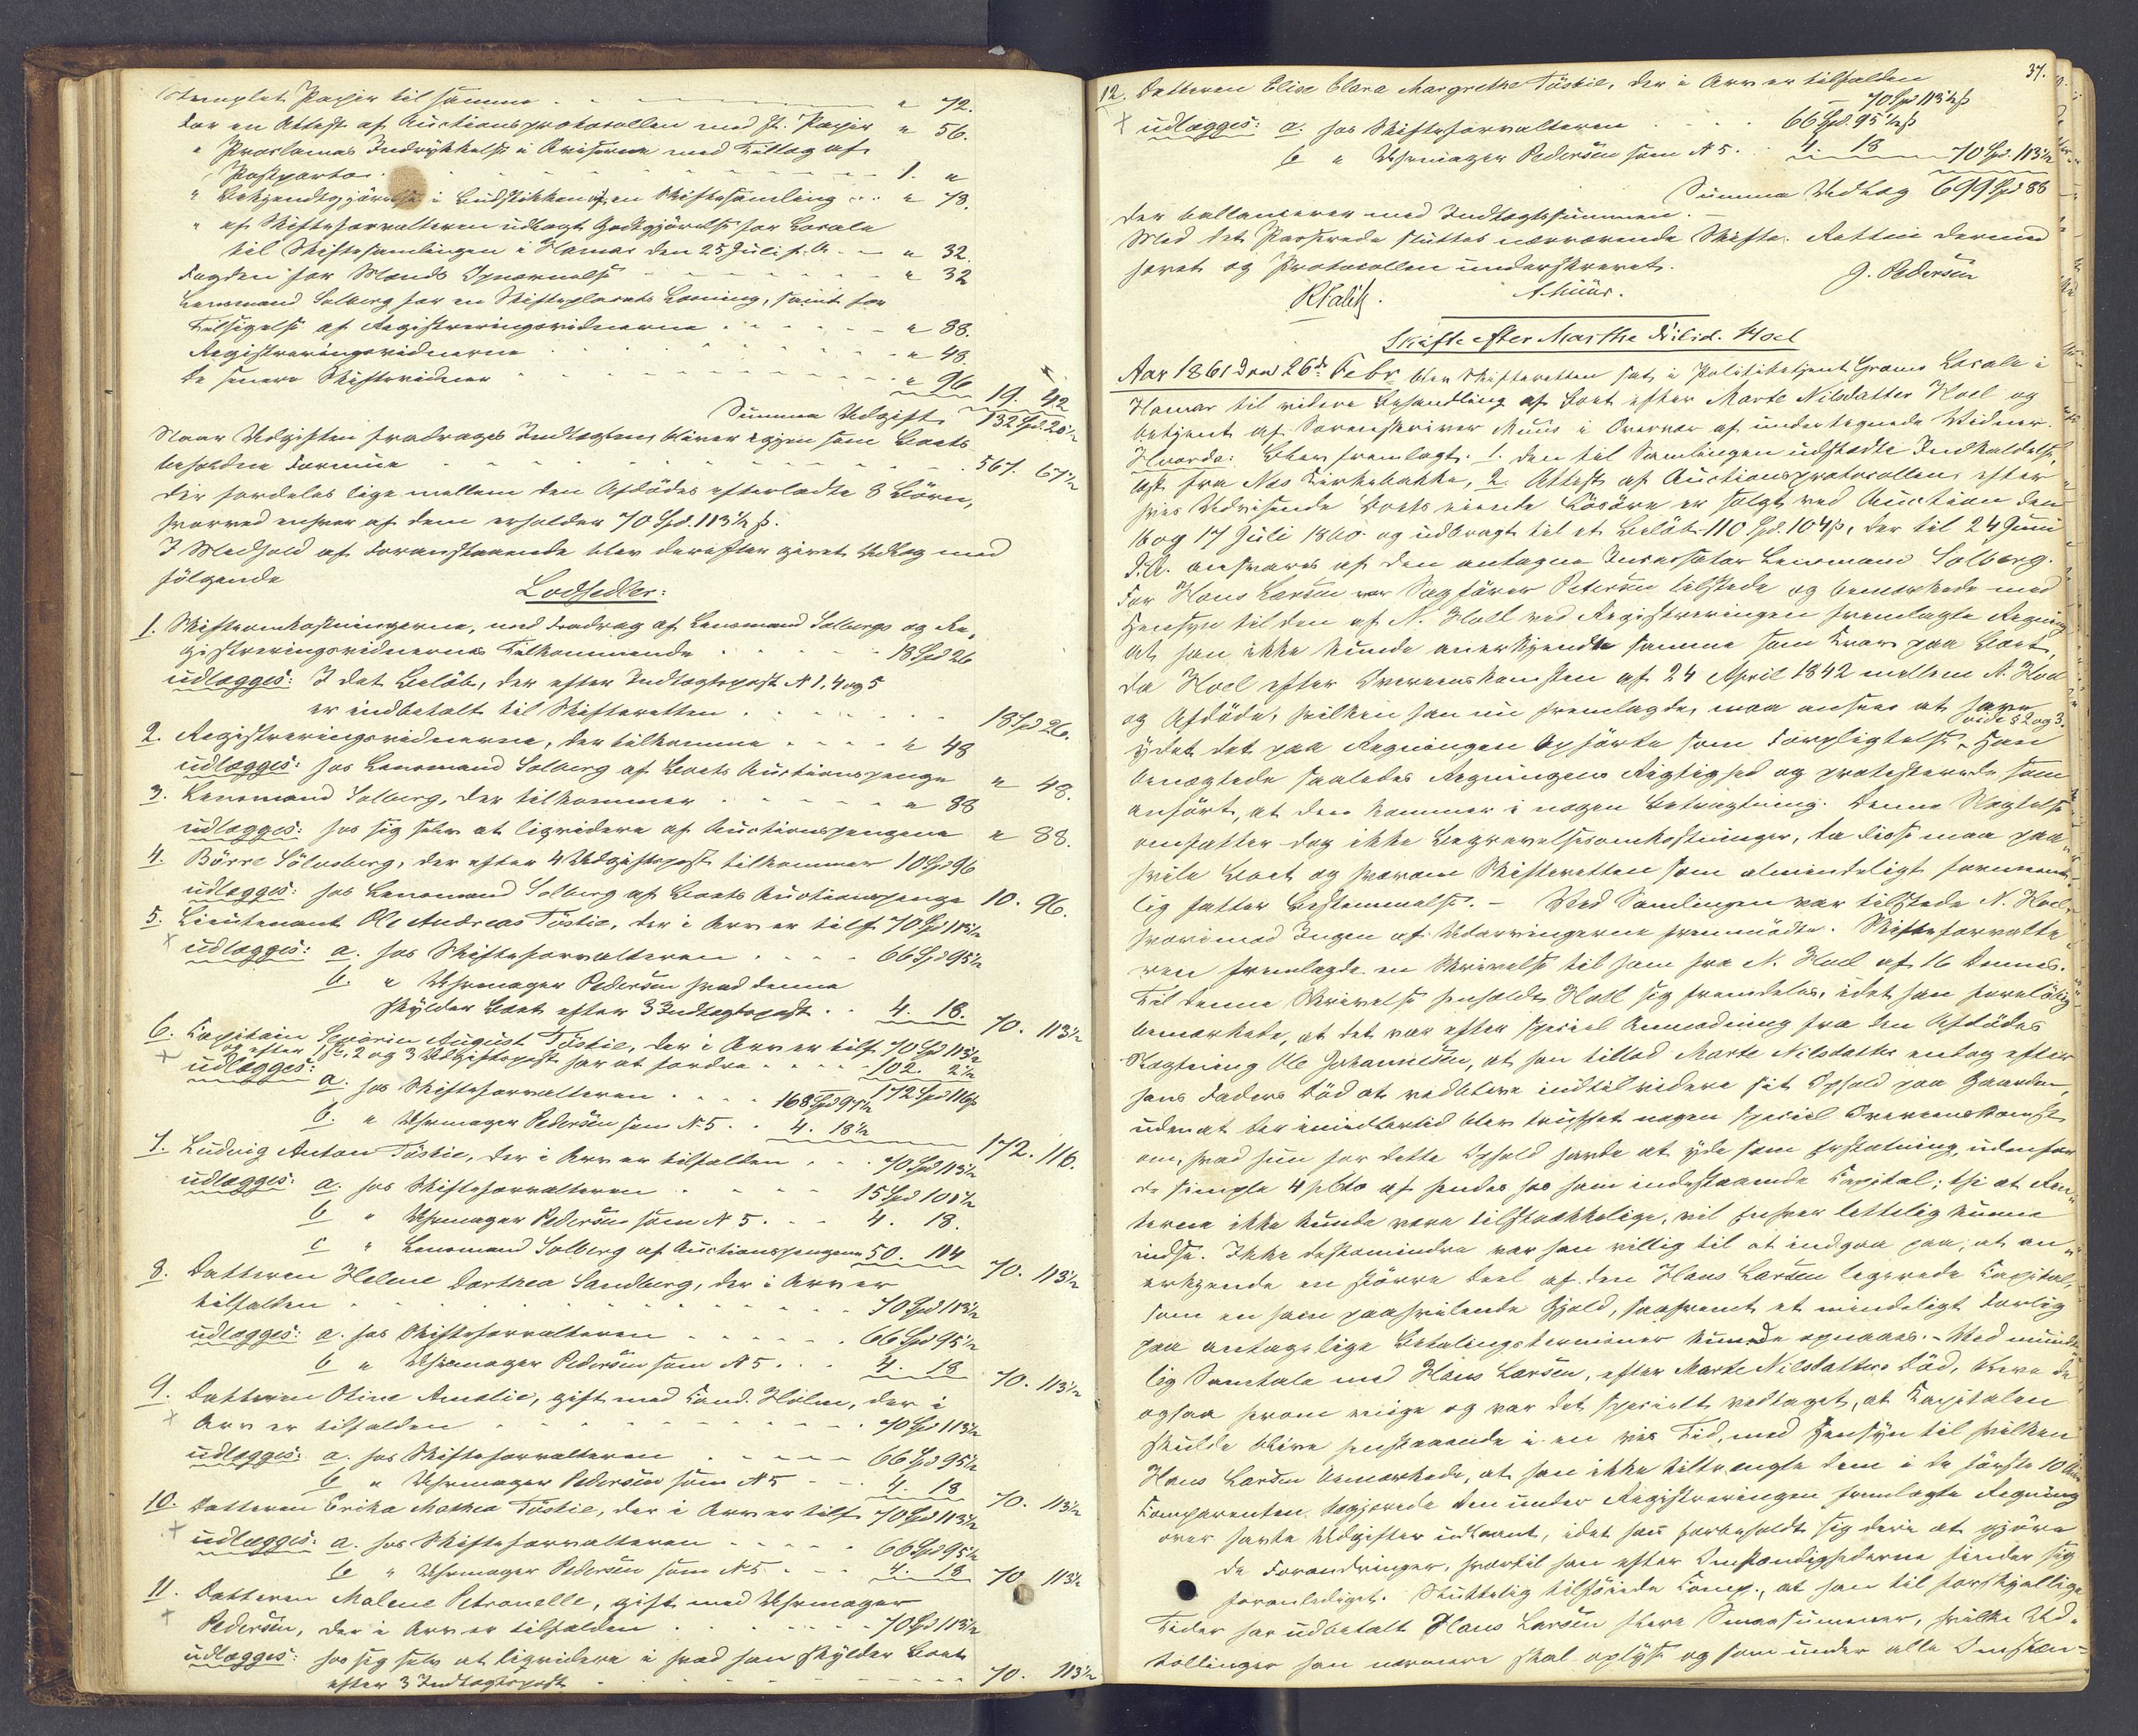 Stemplet Papir til samme " 72.
For en Attest af Auctionsprotokollen med st. Papir " 56.
" Proclamas Indrykkelse i Aviserne med Tillæg af
Postporto. 1. "
" Bekjendtgjørelse i Budstikken om en Skiftesamling " 78.
" af Skifteforvalteren udlagt Godtgjørelse for Locale
til Skiftesamlingen i Hamar den 25 Juli f. A. " 32.
Fogden for Mænds Opnævnelse " 32
Lensmand Solberg for en Skifteplacats Læsning, samt for
Tilsigelse af Registreringsvidnerne " 88.
Registreringsvidnerne " 48.
De senere Skiftevidner " 96 19. 42
Summa Udgift 132 Spd. 20½
Naar Udgiften fradrages Indtægten, bliver igjen som Boets
beholdne Formue 567. 67½
Der fordeles lige mellem den Afdødes efterladte 8 Børn,
hvorved enhver af dem erholder 70 Spd. 113½ ß.
I Medhold af Foranstaaende blev derefter givet Udlæg med
følgende
Lodsedler:
1. Skifteomkostningerne, med Fradrag af Lensmand Solbergs og Re-
gistreringsvidnernes Tilkommende 18 Spd 26
udlægges: I det Beløb, der efter Indtægtspost N 1, 4 og 5
er indbetalt til Skifteretten 18 Spd 26.
2. Registreringsvidnerne, der tilkomme " 48
udlægges: hos Lensmand Solberg af Boets Auctionspenge " 48.
3. Lensmand Solberg, der tilkommer " 88
udlægges: hos sig selv at liqvidere af Auctionspengene " 88.
4. Börre Sölvsberg, der efter 4 Udgiftspost tilkommer 10 Spd 96
udlægges: hos Lensmand Solberg af Boets Auctionspenge 10. 96.
5. Lieutenant Ole Andreas Tøstie, der i Arv er tilf. 70 Spd 113½
udlægges: a. hos Skifteforvalteren 66 Spd 95½
b. " Uhrmager Pedersen hvad denne
skylder Boet efter 3 Indtægtspost 4. 18. 70. 113½
6. Capitain Severin August Tøstie, der i Arv er tilf. 70 Spd 113½
og efter 1ste, 2 og 3 Udgiftspost har at fordre 102. 2½
udlægges: 172 Spd 116ß
a. hos Skifteforvalteren 168 Spd 97½
b. " Uhrmager Pedersen som N 5 4. 18½ 172. 116.
7. Ludvig Anton Tøstie, der i Arv er tilfalden 70 Spd 113½
udlægges: a. hos Skifteforvalteren 15 Spd 101½
b " Uhrmager Pedersen som N 5 4. 18.
c " Lensmand Solberg af Auctionspengene 50. 114 70. 113½
8. Datteren Helene Dorthea Sandberg, der i Arv er
tilfalden 70 Spd 113½
udlægges: a. hos Skifteforvalteren 66 Spd 95½
b " Uhrmager Pedersen som N 5 4. 18 70. 113½
9. Datteren Oline Amalie, gift med Cand. Holm, der i
Arv er tilfalden 70 Spd 113½
udlægges: a. hos Skifteforvalteren 66 Spd 95½
b " Uhrmager Pedersen som N 5 4. 18 70. 113½
10. Datteren Erika Mathea Tøstie, der i Arv er tilf. 70 Spd 113½
udlægges: a. hos Skifteforvalteren 66 Spd 95½
b " Uhrmager Pedersen som N 5 4. 18 70. 113½
11. Datteren Malene Petronelle, gift med Uhrmager
Pedersen, der i Arv er tilfalden 70 Spd 113½
udlægges: hos sig selv at liqvidere i hvad han skylder Boet
efter 3 Indtægtspost 70. 113½
37.
12. Datteren Elise Clara Margrethe Tøstie, der i Arv er tilfalden
70 Spd 113½ ß
udlægges: a. hos Skifteforvalteren 66 Spd. 95½ ß
b " Uhrmager Pedersen som N 5. 4. 18 70 Spd. 113½
Summa Udlæg 699 Spd 88
der ballancerer med Indtægtssummen.
Med det Passerede sluttes nærværende Skifte. Retten dermed
hævet og Protocollen underskrevet.
Muus. J. Pedersen
Skifte efter Marthe Nilsd. Hoel
Aar 1861 den 26de Febr blev Skifteretten sat i Politibetjent Grams Locale i
Hamar til videre Behandling af Boet efter Marte Nilsdatter Hoel og
betjent af Sorenskriver Muus i Overvær af undertegnede Vidner.
Hvorda: Blev fremlagt: 1. den til Samlingen udstedte Indkaldelse,
læst fra Næs Kirkebakke, 2. Attest af Auctionsprotocollen, efter
hvis Udvisende Boets eiende Løsøre er solgt ved Auction den
16 og 17 Juli 1860 og udbragt til et Beløb 110 Spd. 104ß, der til 24 Juni
d. A. ansvares af den antagne Incassator Lensmand Solberg.
For Hans Larsen var Sagfører Petersen tilstede og bemærkede med
Hensyn til den af N. Hoel ved Registreringen fremlagte Regning
at han ikke kunde anerkjende samme som Krav paa Boet,
da Hoel efter Overeenskomsten af 24 April 1842 mellem N. Hoel
og Afdøde, hvilken han nu fremlagde, maa ansees at have
vide § 2 og 3.
ydet det paa Regningen Opførte som Forpligtelse. Han
benægtede saaledes Regningens Rigtighed og protesterede som
anført, at den kommer i nogen Betragtning. Denne Nægtelse
omfatter dog ikke Begravelsesomkostninger, da disse maa paa-
hvile Boet og hvorom Skifteretten som almindeligt formeent-
lig fatter Bestemmelse. – Ved Samlingen var tilstede N. Hoel,
hvorimod Ingen af Udarvingerne fremmødte. Skifteforvalte
ren fremlagde en Skrivelse til ham fra N. Hoel af 16 dennes.
Til denne Skrivelse henholdt Hoel sig fremdeles, idet han foreløbig
bemærkede, at det var efter speciel Anmodning fra den Afdødes
Slægtning Ole Johannesen, at han tillod Marte Nilsdatter endog efter
hans Faders Død at vedblive indtil videre sit Ophold paa Gaarden,
uden at der imidlertid blev truffet nogen speciel Overeenskomst
om, hvad hun for dette Ophold havde at yde som Erstatning, udenfor
de simple 4 pCto af hendes hos ham indestaaende Capital; thi at Ren-
terne ikke kunde være tilstrækkelige, vil Enhver lettelig kunne
indse. Ikke destomindre var han villig til at indgaa paa, at an-
erkjende en større Deel af den Hans Larsen legerede Capital,
som en ham paahvilende Gjæld, saafremt et mindeligt Forlig
paa antagelige Betalingsterminer kunde opnaaes. – Ved mundt
lig Samtale med Hans Larsen, efter Marte Nilsdatters Død, bleve de
ogsaa herom enige og var det specielt vedtaget, at Capitalen
skulde blive henstaaende i en vis Tid, med Hensyn til hvilken
Hans Larsen bemærkede, at han ikke tiltrængte dem i de første 10 Aar
Comparenten begjærede den under Registreringen fremlagte Regning
over havte Udgifter indtaget, idet han forbeholdt sig deri at gjøre
de Forandringer, hvortil han efter Omstændighederne finder sig
foranlediget. Sluttelig tilføiede Comp., at han til forskjellige
Tider har udbetalt Hans Larsen flere Smaasummer, hvilke Ud-
tællinger han nærmere skal oplyse og som under alle Omstæn-